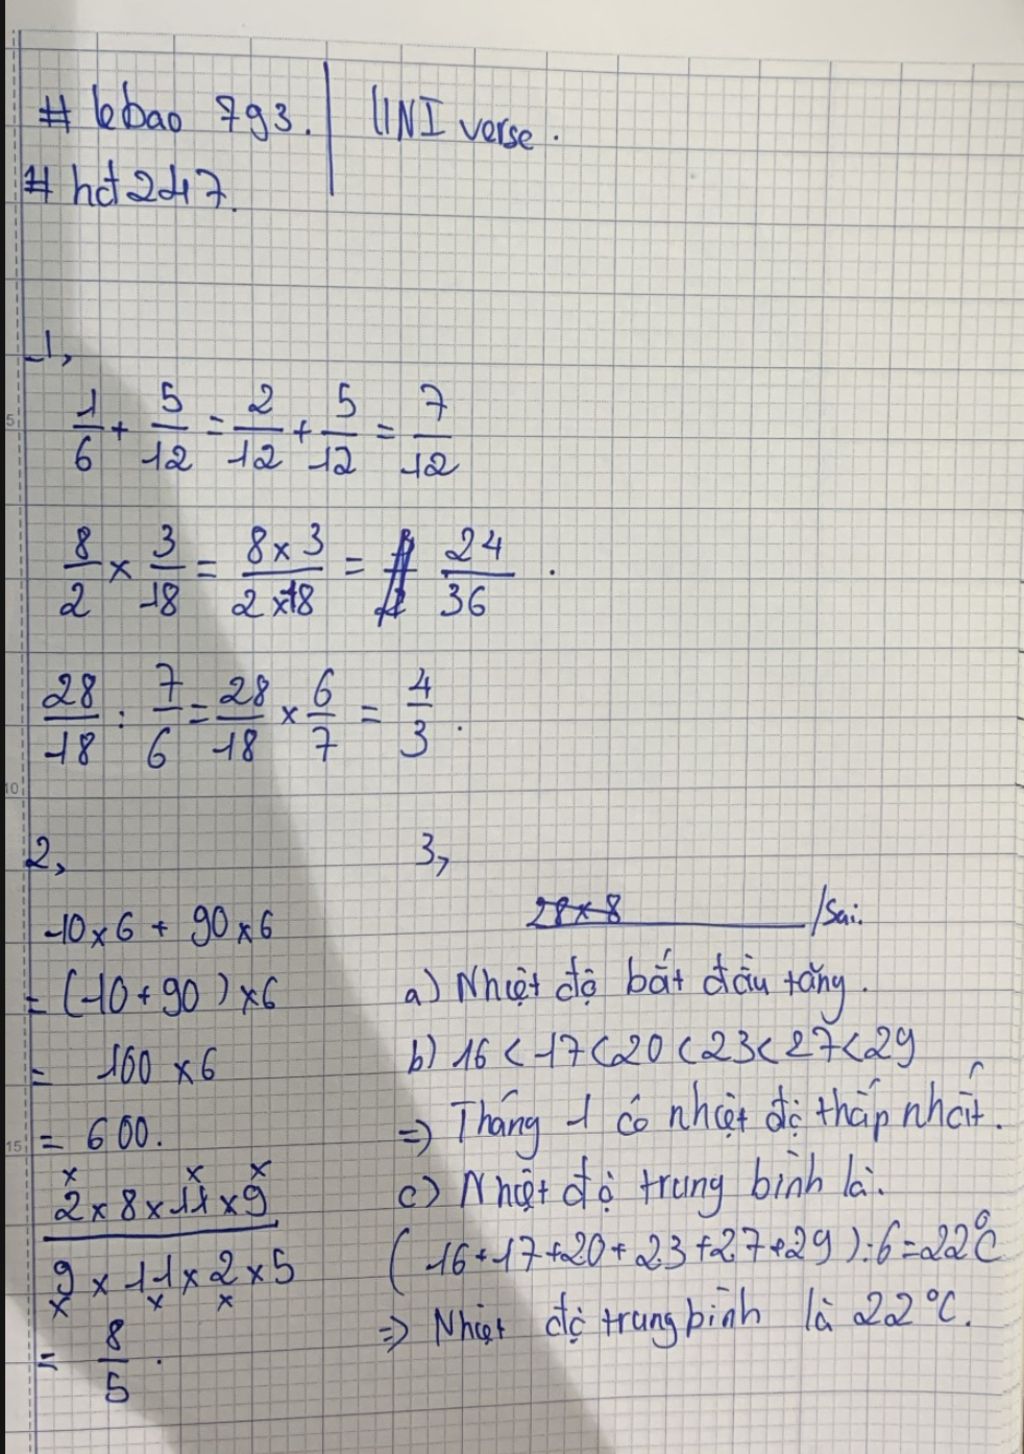 # lebao 793. | UNI verse.
# hđ247.
1,
1/6 + 5/12 = 2/12 + 5/12 = 7/12
8/2 × 3/18 = 8×3/2×18 = 24/36 .
28/18 : 7/6 = 28/18 × 6/7 = 4/3 .
2,
10×6 + 90×6
= (10+90)×6
= 100 ×6
= 600.
2×8×11×9/9×11×2×5
= 8/5 .
3,
28×8 /Sai.
a) Nhiệt độ bắt đầu tăng.
b) 16<17<20<23<27<29
=> Tháng 1 có nhiệt độ thấp nhất.
c) Nhiệt độ trung bình là:
(16+17+20+23+27+29):6=22°C
=> Nhiệt độ trung bình là 22°C.